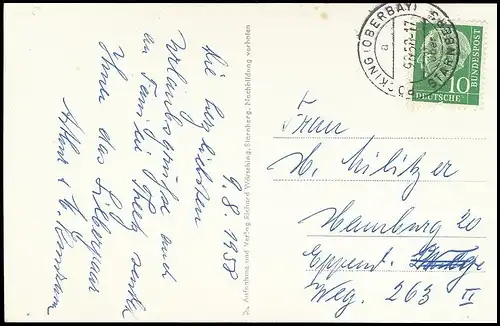 9.8.1958
Die herzlichsten
Urlaubsgrüße auch
an Familie
Ihnen das Silberpaar
Je. Aufnahme und Verlag Richard Wörsching, Starnberg. Nachbildung verboten
PÖCKING (OBERBAY)
STARNBERG
DEUTSCHE BUNDESPOST
10
Frau
H. Militzer
Hamburg 20
Eppend.
Weg. 263 II